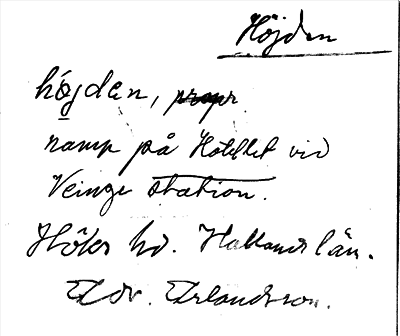 Höjden
höjden, propr
namn på Hotellet vid
Veinge station.
Höks hd. Hallands län.
Edv. Erlandsson.